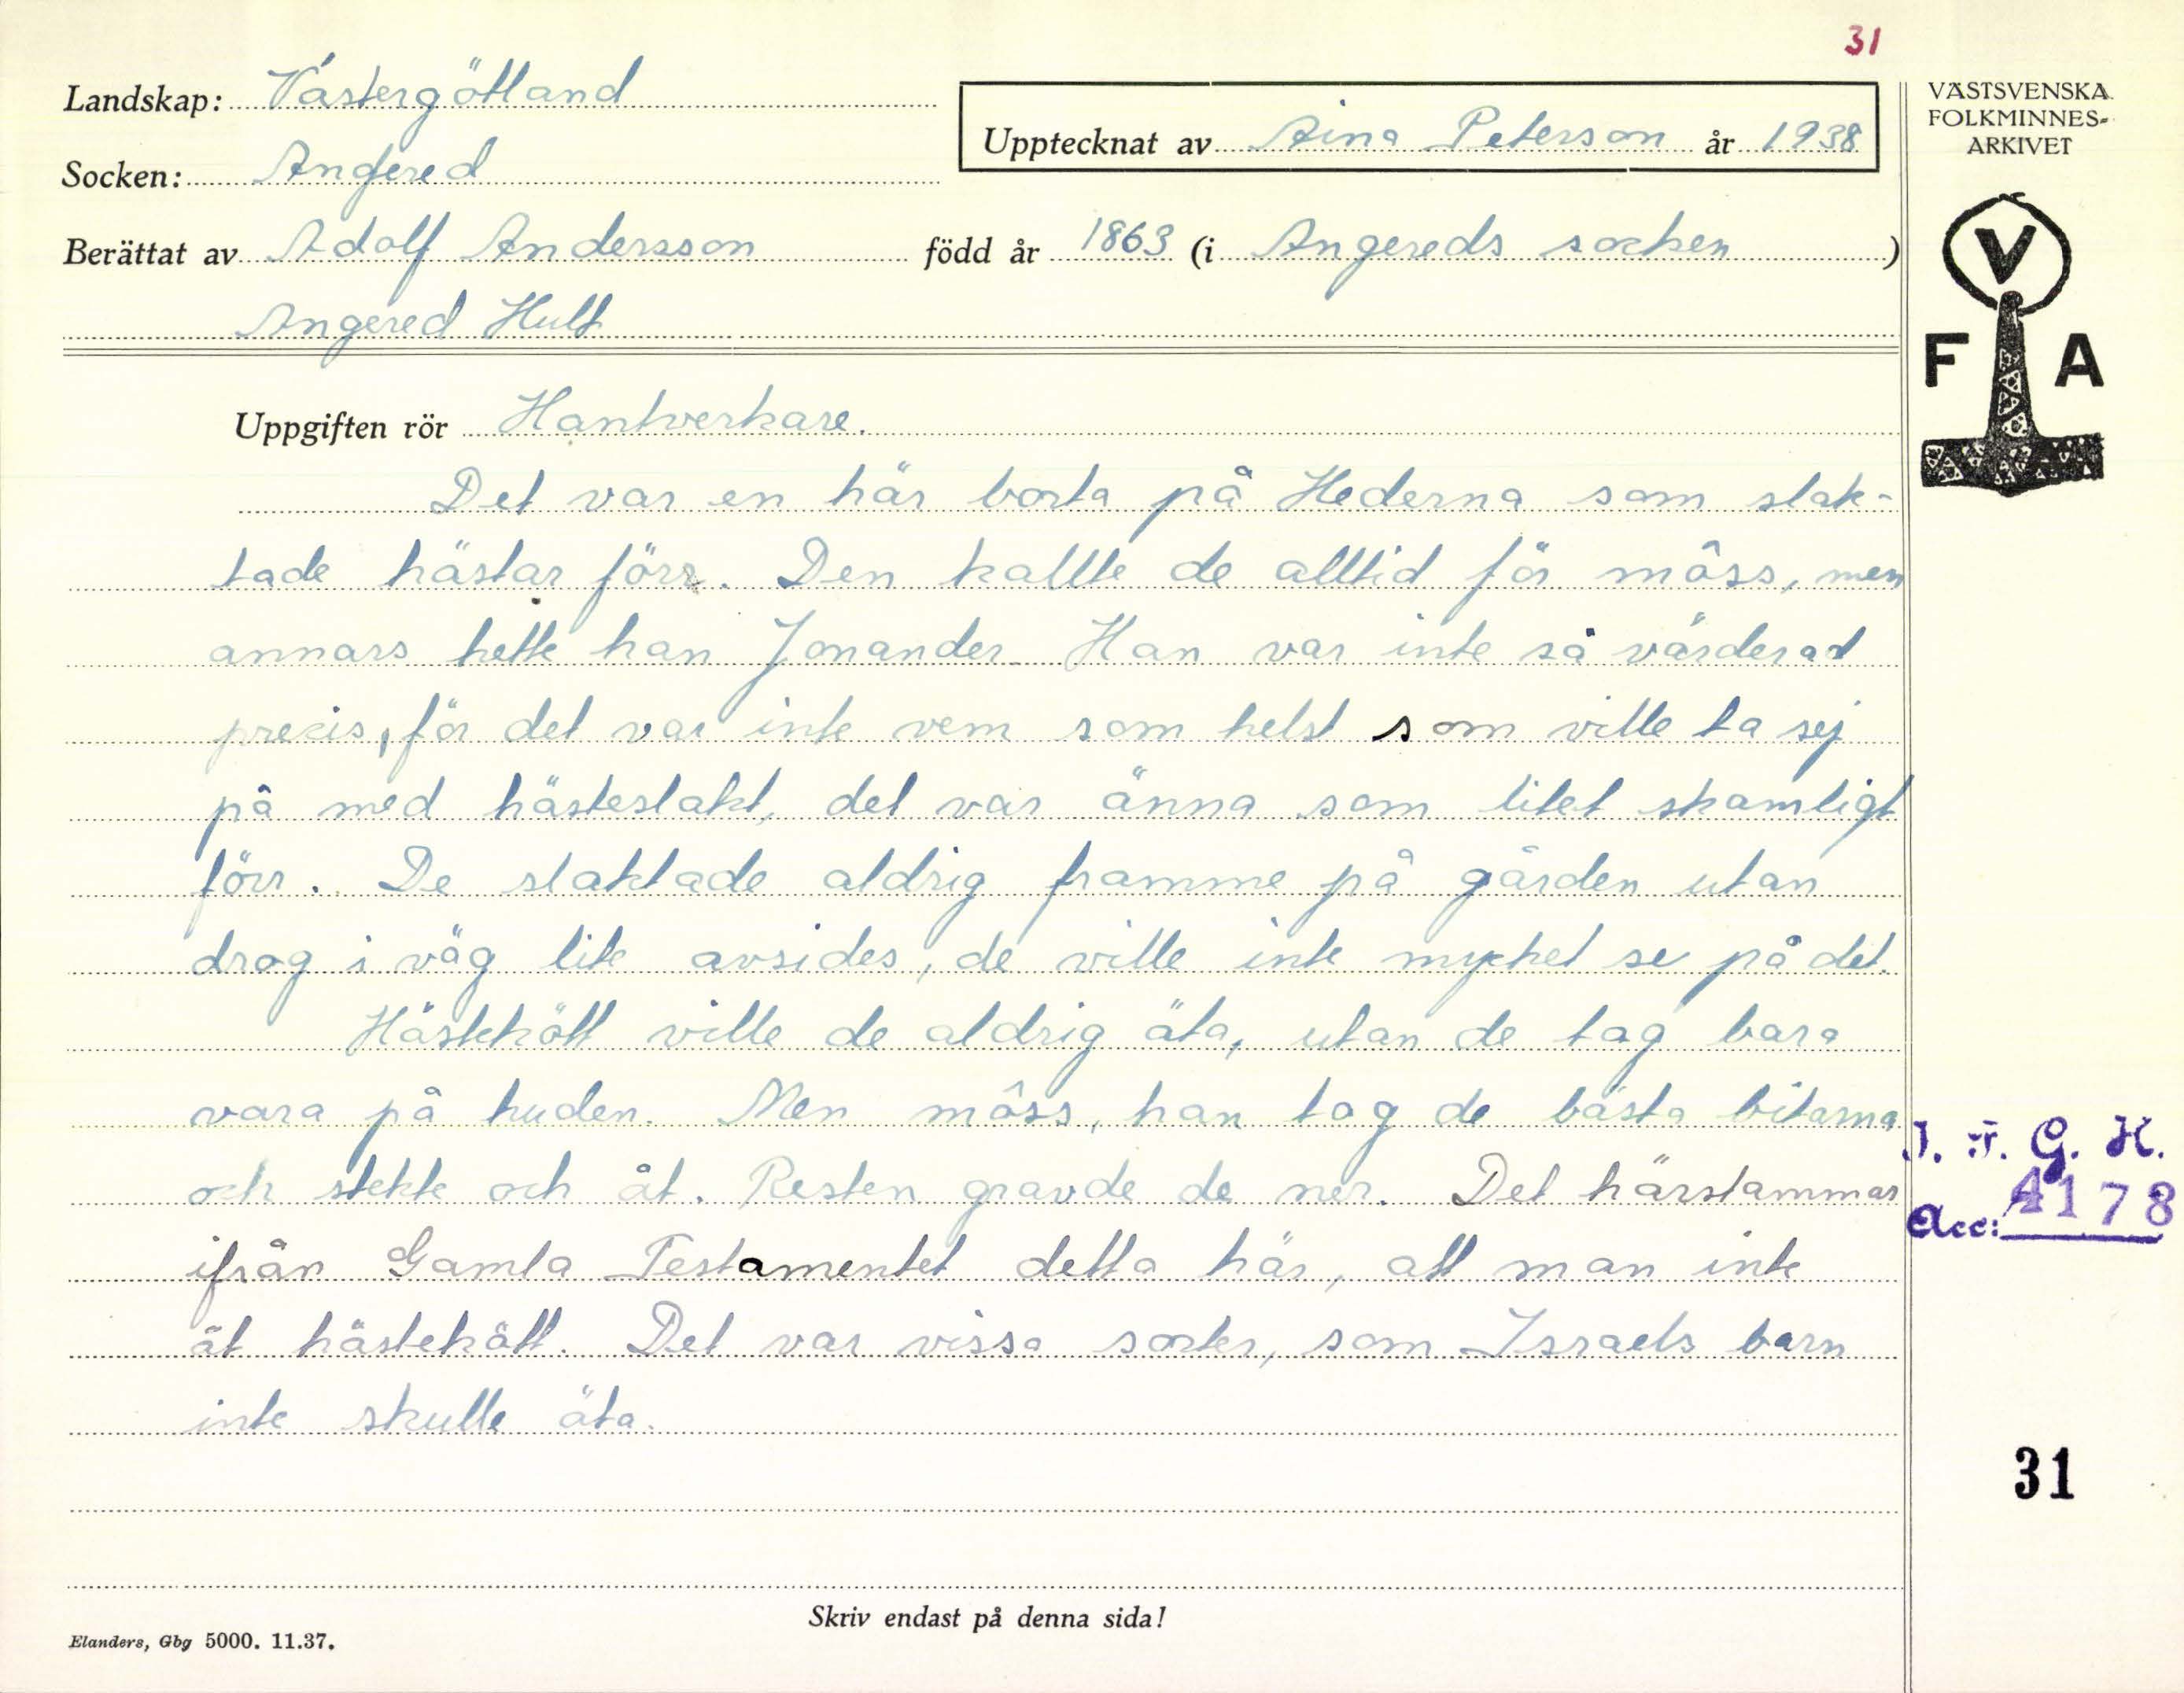 31
Landskap: Västergötland
Socken: Angered
Upptecknat av Aina Peterson år 1938
Berättat av Adolf Andersson född år 1863 (i Angereds socken)
Angered Hult
VÄSTSVENSKA
FOLKMINNES-
ARKIVET
V
F A
Uppgiften rör Hantverkare.
Det var en här borta på Hederna som slak-
tade hästar förr. Den kallte de alltid för môss, men
annars hette han Jonander. Han var inte så värderad
precis, för det var inte vem som helst som ville ta sej
på med hästeslakt, det var änna som litet skamligt
förr. De slaktade aldrig framme på gården utan
drog i väg lite avsides, de ville inte mycket se på det.
Hästekött ville de aldrig äta, utan de tog bara
vara på huden. Men môss, han tog de bästa bitarna
och stekte och åt. Resten gravde de ner. Det härstammar
ifrån Gamla Testamentet detta här, att man inte
åt hästekött. Det var vissa sorter, som Israels barn
inte skulle äta.
I. F. G. H.
Acc: 4178
31
Skriv endast på denna sida!
Elanders, Gbg 5000. 11.37.